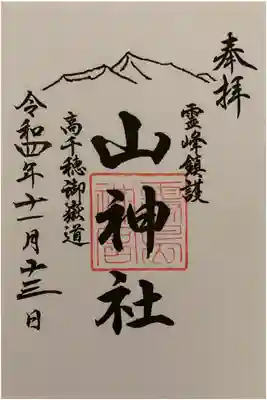 奉拝
霊峰鎮護
山神社
高千穂御嶽道
令和四年十一月十三日